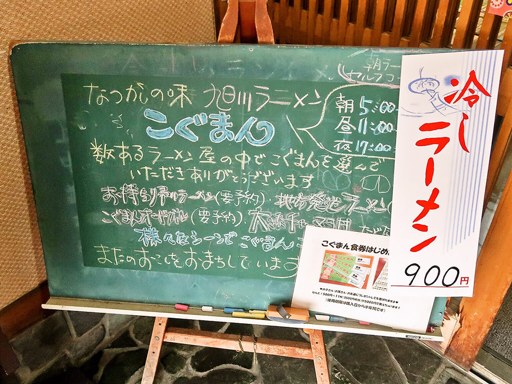 なつかしの味 旭川ラーメン
こぐまん
朝ラー
セルフコ
朝 5:00
昼 11:00
夜 17:00
数あるラーメン屋の中でこぐまんを選んで
いただきありがとうございます
お持ち帰りラーメン(要予約)
こぐまんオードブル(要予約)
様々なシーンでこぐまん
またのおこしをおまちしています
冷しラーメン
900円
こぐまん食券はじめ